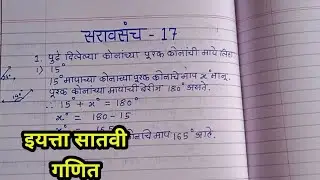 सरावसंच - 17
1. पुढे दिलेल्या कोनांच्या पूरक कोनांची मापे लिहा
1) 15°
15° मापाच्या कोनाच्या पूरक कोनाचे माप x° मानू.
पूरक कोनांच्या मापांची बेरीज 180° असते.
∴ 15° + x° = 180°
x° = 180 - 15
x°
माप 165° आहे.
इयत्ता सातवी
गणित